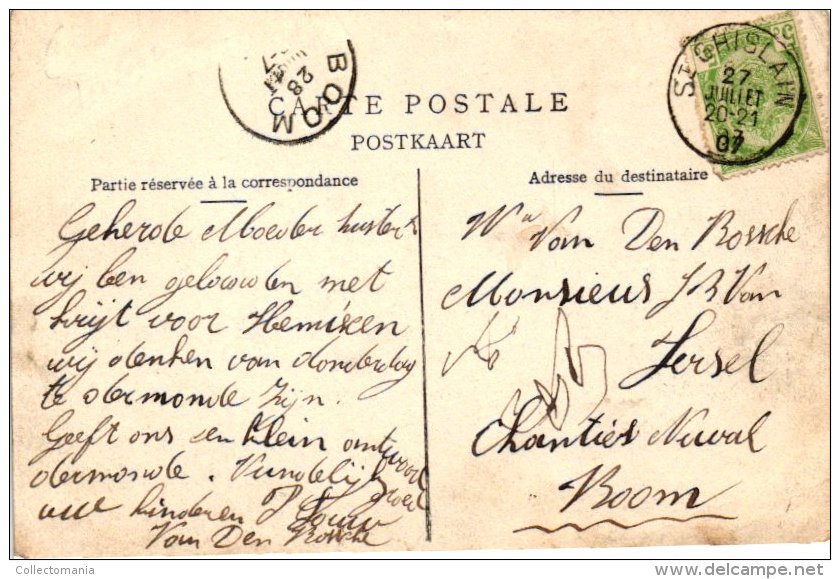 BOOM
28
CARTE POSTALE
POSTKAART
ST GHISLAIN
27
JUILLET
20-21
07
Partie réservée à la correspondance
Adresse du destinataire
Geherde Moeder
wij ben gelowden met
krijt voor Hemixen
wij denken van donderdag
te dermonde zijn.
Geeft ons een klein antwoord
dermonde. Vundelijk groed
uw kinderen
Van Den Bossche
We Van Den Bossche
Monsieur J B Van
Iersel
Chantier Naval
Boom
Collectomania
delcampe.net